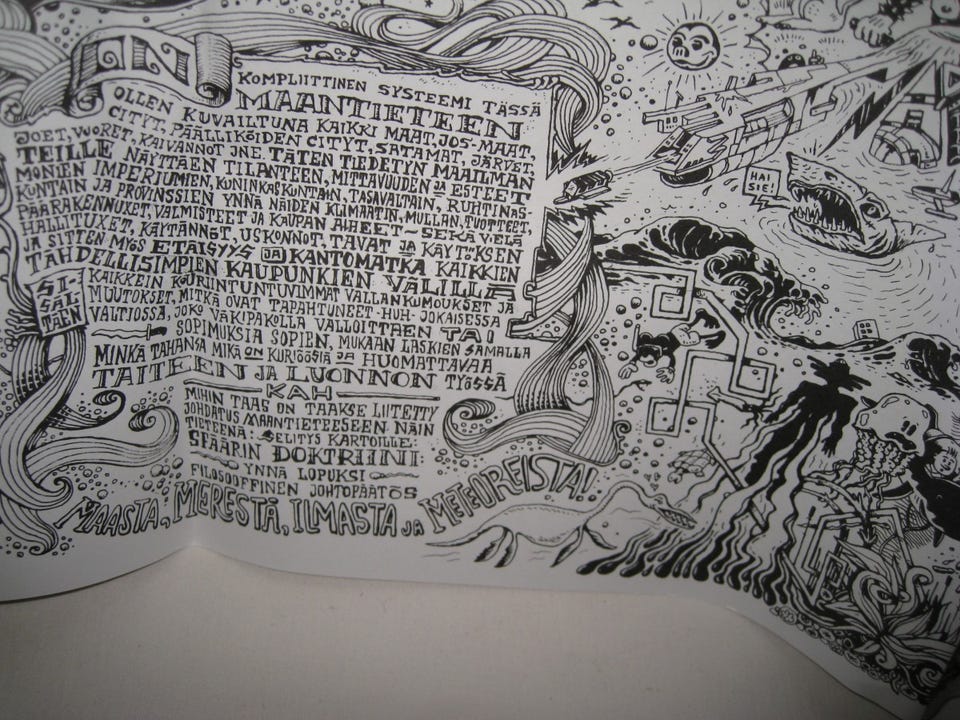 AN
KOMPLIITTINEN SYSTEEMI TÄSSÄ
MAANTIETEEN
OLLEN KUVAILTUNA KAIKKI MAAT, JOS-MAAT,
CITYT, PÄÄLLIKÖIDEN CITYT, SATAMAT, JÄRVET,
JOET, VUORET, KAIVANNOT JNE. TÄTEN TIEDETYN MAAILMAN
TEILLE NÄYTTÄEN TILANTEEN, MITTAVUUDEN JA ESTEET
MONIEN IMPERIUMIEN, KUNINKASKUNTAIN, TASAVALTAIN, RUHTINAS-
KUNTAIN JA PROVINSSIEN YNNÄ NÄIDEN KLIMAATIN, MULLAN, TUOTTEET,
PÄÄRAKENNUXET, VALMISTEET JA KAUPAN AIHEET – SEKÄ VIELÄ
HALLITUXET, KÄYTÄNNÖT, USKONNOT, TAVAT JA KÄYTÖKSEN
JA SITTEN MYÖS ETÄISYYS JA KANTOMATKA KAIKKIEN
TÄHDELLISIMPIEN KAUPUNKIEN VÄLILLÄ
SI-
SÄL-
TÄEN
KAIKKEIN KOURIINTUNTUVIMMAT VALLANKUMOUKSET JA
MUUTOKSET, MITKÄ OVAT TAPAHTUNEET -HUH- JOKAISESSA
VALTIOSSA, JOKO VÄKIPAKOLLA VALLOITTAEN TAI
SOPIMUKSIA SOPIEN, MUKAAN LASKIEN SAMALLA
MINKÄ TAHANSA MIKÄ ON KURIÖÖSIÄ JA HUOMATTAVAA
TAITEEN JA LUONNON TYÖSSÄ
KAH
MIHIN TAAS ON TAAKSE LIITETTY
JOHDATUS MAANTIETEESEEN NÄIN
TIETEENÄ: SELITYS KARTOILLE:
SFÄÄRIN DOKTRIINI:
YNNÄ LOPUKSI
FILOSOOFFINEN JOHTOPÄÄTÖS
MAASTA, MERESTÄ, ILMASTA JA METEOREISTA!
HAI
SIE!